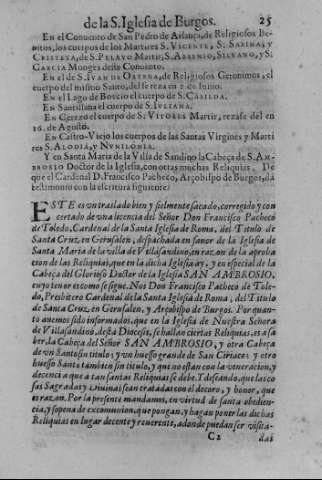 de la S. Iglesia de Burgos. 25
En el Convento de San Pedro de Arlança, de Religiosos Be-
nitos, los cuerpos de los Martires S. VICENTE, S. SABINA, y
CRISTEVA, de S. PELAYO Martir, S. ARSENIO, SILVANO, y S.
GARCIA Monges deste Convento.
En el de S. IVAN DE ORTEGA, de Religiosos Geronimos, el
cuerpo del mismo Santo, del se reza en 2 de Iunio.
En el Lago de Bovecio el cuerpo de S. CASILDA.
En Santillana el cuerpo de S. IVLIANA.
En Cerezo el cuerpo de S. VITORES Martir, rezase del en
26. de Agosto.
En Castro-Viejo los cuerpos de las Santas Virgines y Marti
res S. ALODIA, y NVNILONIA.
Y en Santa Maria de la Villa de Sandino la Cabeça de S. AM-
BROSIO Doctor de la Iglesia, con otras muchas Reliquias. De
que el Cardenal D. Francisco Pacheco, Arçobispo de Burgos, dà
testimonio con la escritura siguiente:
ESTE es un traslado bien y fielmente sacado, corregido y con
certado de una licencia del Señor Don Francisco Pacheco
de Toledo, Cardenal de la Santa Iglesia de Roma, del Titulo de
Santa Cruz, en Gerusalen, despachada en favor de la Iglesia de
Santa Maria de la villa de Villasandino, en razon de la aproba
cion de las Reliquias, que en la dicha Iglesia ay, y en especial de la
Cabeça del Glorioso Dotor de la Iglesia SAN AMBROSIO,
cuyo tenor es como se sigue. Nos Don Francisco Pacheco de Tole-
do, Presbitero Cardenal de la Santa Iglesia de Roma, del Titulo
de Santa Cruz, en Gerusalen, y Arçobispo de Burgos. Por quan-
to avemos sido informados, que en la Iglesia de Nuestra Señora
de Villasandino, desta Diocesis, se hallan ciertas Reliquias, es a sa
ber, la Cabeça del Señor SAN AMBROSIO, y otra Cabeça
de un Santo sin titulo; y un huesso grande de San Ciriaco; y otro
huesso Santo tambien sin titulo, y que no están con la veneracion, y
decencia que a tan santas Reliquias se debe. Y deseando, que las co
sas Sagradas y Divinas sean tratadas con el decoro, y honor, que
es razon. Por la presente mandamos, en virtud de santa obedien-
cia, y so pena de excomunion, que pongan, y hagan poner las dichas
Reliquias en lugar decente y reverente, adonde puedan ser visita-
C2 das